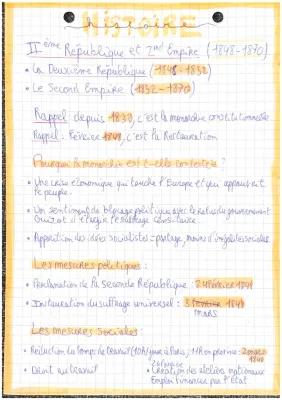 HISTOIRE
histoire
IIème République et 2nd Empire (1848-1870)
• La Deuxième République (1848-1852)
• Le Second Empire (1852-1870)
Rappel: depuis 1830, c'est la monarchie constitutionnelle
Rappel: Février 1848, c'est la Restauration
Pourquoi la monarchie est-elle contestée ?
• Une crise économique qui touche l'Europe et qui appauvrit
le peuple.
• Un sentiment de blocage politique avec le refus du gouvernement
Guizot d'élargir le suffrage censitaire
• Apparition des idées socialistes: partage, moins d'inégalités sociales
Les mesures politiques
• Proclamation de la Seconde République : 24 Février 1848
• Instauration du suffrage universel : 5 février 1848
mars
Les mesures sociales
• Réduction du temps de travail (10h/jour à Paris, 11h en province : 2 mars
1848
• Droit au travail
• Création des ateliers nationaux
Emplois fournies par l'état